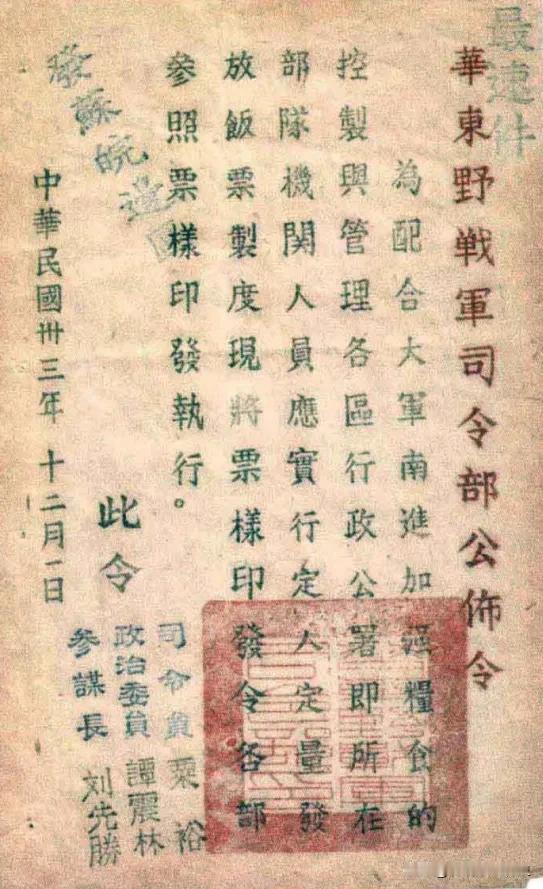 最速件
華東野戰軍司令部公佈令
為配合大軍南進加强糧食的
控製與管理各區行政公署即所在
部隊機関人員應實行定人定量發
放飯票製度現將票樣印發令各部
參照票樣印發執行。
此令
司令員 粟裕
政治委員 譚震林
參謀長 刘先勝
中華民國卅三年十二月一日
發蘇皖邊區